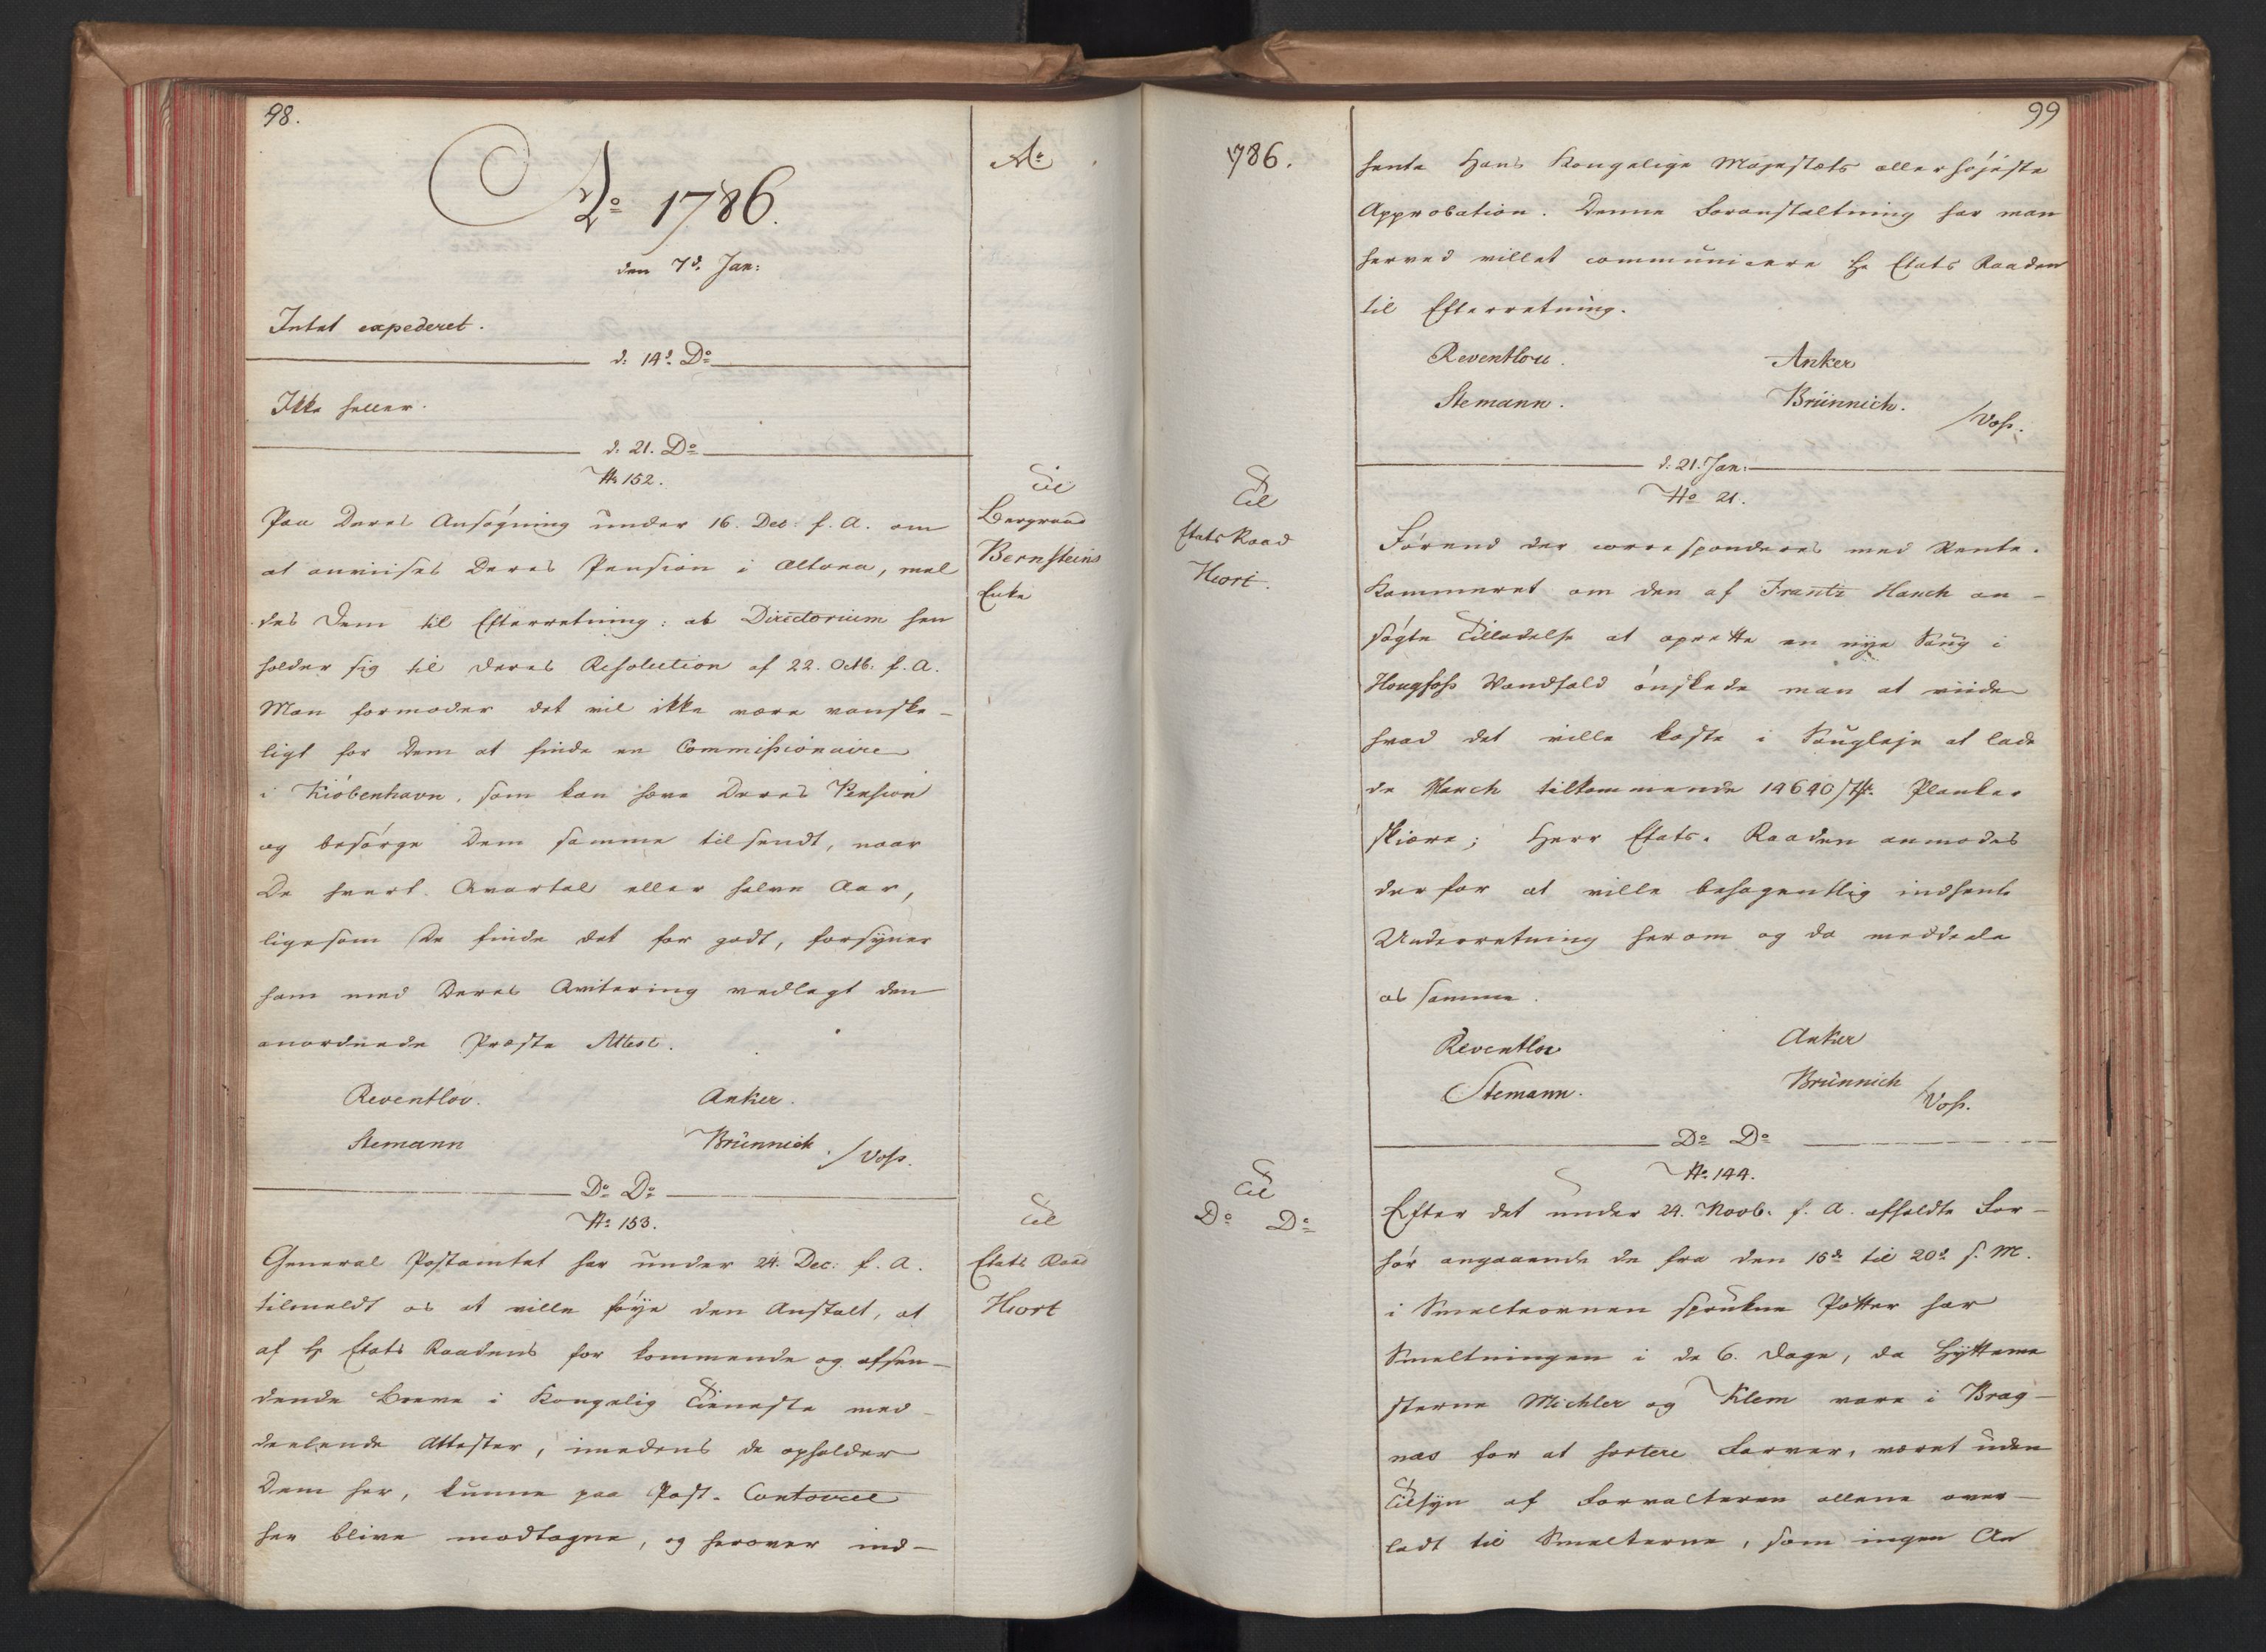 98.
Ao 1786.
Ao
den 7de Jan:
Intet expederet.
d: 14de Do
Ikke heller.
d: 21. Do
No 152.
Til
Bergraad
Bernsteins
Enke
Paa Deres Ansøgning under 16. Dec: f. A. om
at anviises Deres Pension i Altona, mel
des Dem til Efterretning: at Directorium hen
holder sig til Deres Resolution af 22. Octb: f. A.
Man formoder det vil ikke være vanske-
ligt for Dem at finde en Commissionaire
i Kiöbenhavn, som kan hæve Deres Pension
og besørge Dem samme tilsendt, naar
De hvert Qvartal eller halve Aar,
ligesom De finde det for godt, forsyner
ham med Deres Qvitering vedlagt den
anordnede Præste Attest.
Reventlov. Anker.
Stemann Brünnich /Voss.
Do Do
No 153.
Til
Etats Raad
Hiort
General Postamtet har under 24. Dec: f. A.
tilmeldt os at ville føye den Anstalt, at
af Hr Etats Raadens for kommende og afsen-
dende Breve i Kongelig Tieneste med-
deelende Attester, imedens de opholder
Dem her, kunne paa Post-Contoiret
her blive modtagne, og herover ind-
1786.
99
hente Hans Kongelige Majestæts allerhøjeste
Approbation. Denne Foranstaltning har man
herved villet communicere Hr Etats Raaden
til Efterretning.
Reventlou. Anker
Stemann. Brünnich. /Voss.
d: 21. Jan:
No 21.
Til
Etats Raad
Hiort.
Førend der corresponderes med Rente-
Kammeret om den af Frantz Hauch an-
søgte Tilladelse at oprette en nye Saug i
Hougfoss Vandfald ønskede man at viide
hvad det ville koste i Saugleje at lade
de Hauch tilkommende 14640 Planker
skiære; Herr Etats-Raaden anmodes
derfor at ville behagentlig indhente
Underretning herom og da meddeele
os samme.
Reventlov Anker
Stemann. Brünnich /Voss.
Do Do
No 144.
Til
Do Do
Efter det under 24. Novb: f. A. afholdte For-
hør angaaende de fra den 15de til 20de s. M.
i Smelteovnen sprukne Potter har
Smeltningen i de 6. Dage, da Hytteme
sterne Michler og Klem vare i Brag-
næs for at sortere Farver, været uden
Tilsyn af Forvalteren allene over-
ladt til Smelterne, som ingen An